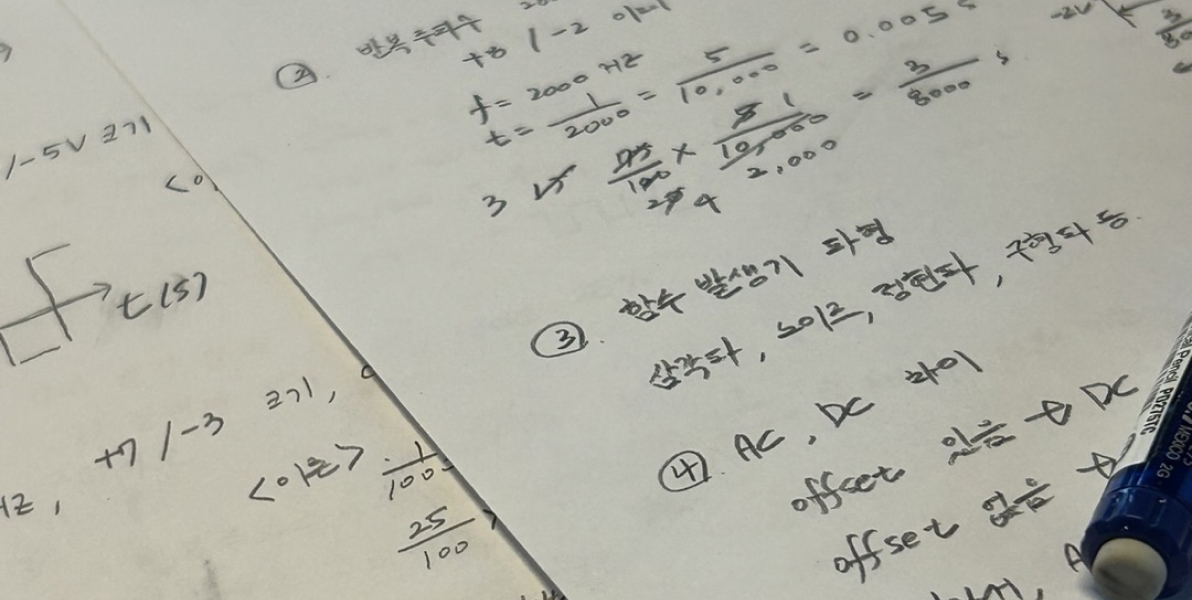 /-5V 크기
t(s)
+7 /-3 크기,
Hz,
<이론> 1/100
25/100
② 반복주파수
+8 /-2
f = 2000 Hz
t = 1/2000 = 5/10,000 = 0.005 s
3 75/100 × 5/10,000 = 3/8000 s
4 2,000 1
-2V
③. 함수 발생기 파형
삼각파, 노이즈, 정현파, 구형파 등.
④. AC, DC 차이
offset 있음 → DC
offset 없음 →
Pencil PD275TC
MEXICO 2G